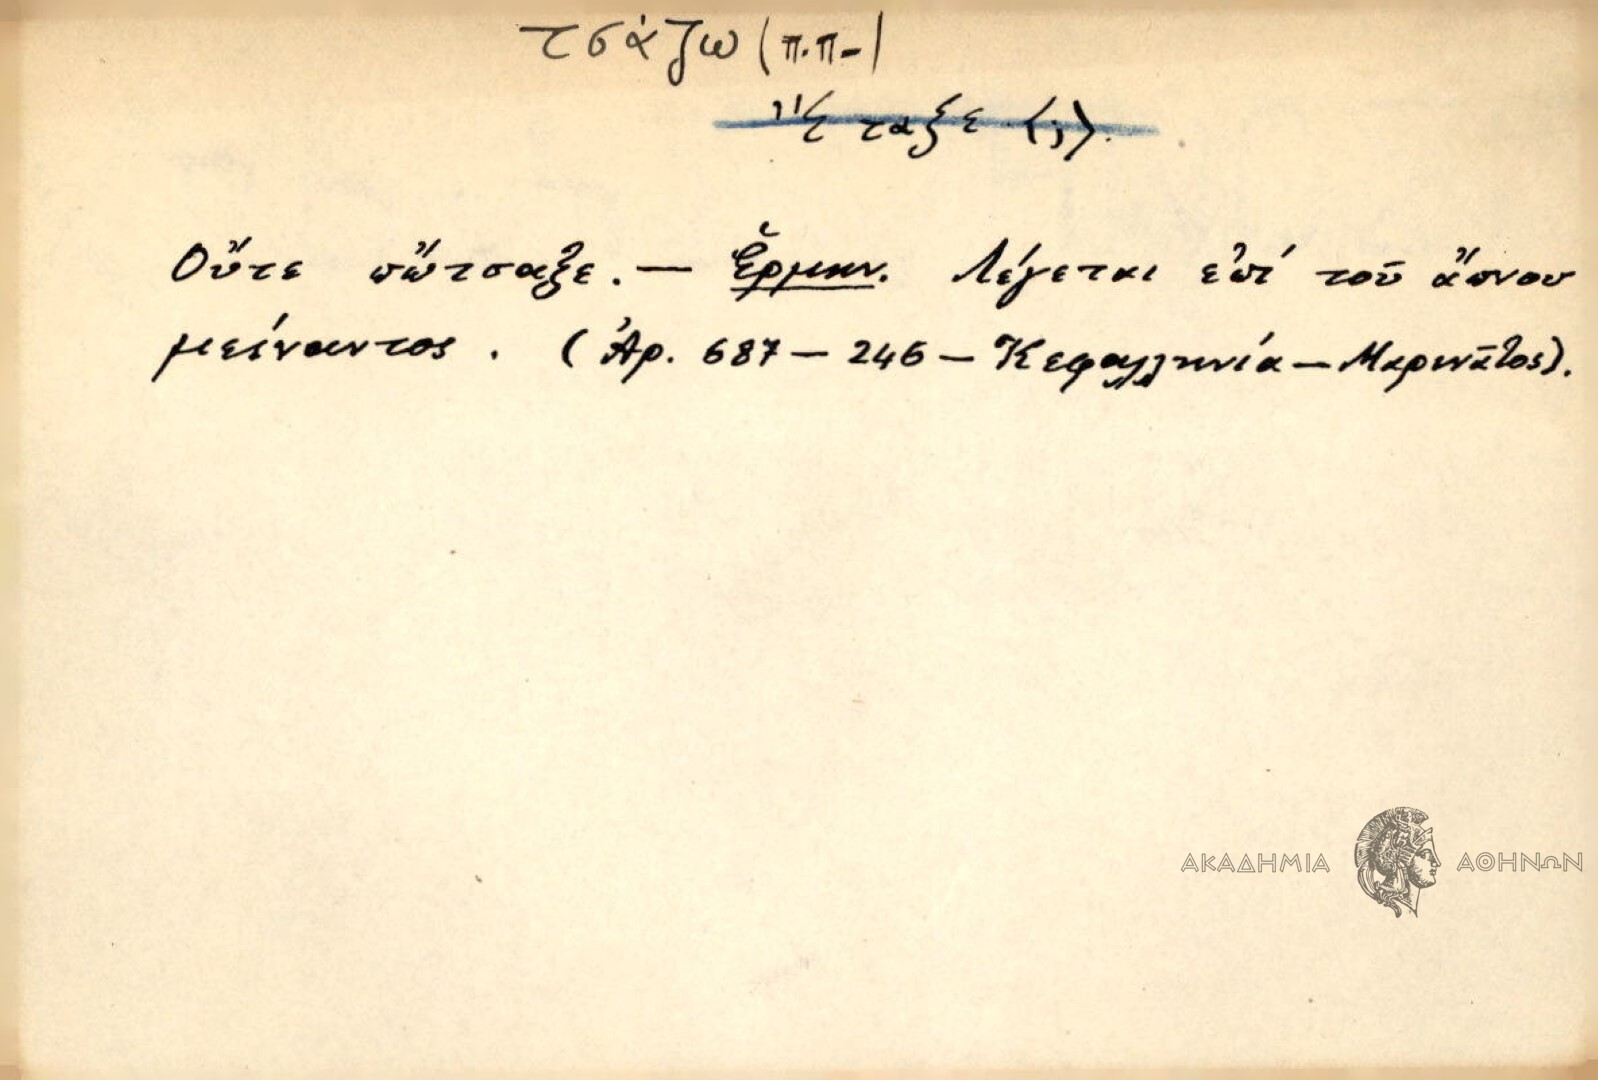 τσάζω (π.π-)
ταξε (;).
Οὔτε πὤτσαξε. — Ἑρμην. Λέγεται ἐπί τοῦ ἄπνου
μείναντος. (Ἀρ. 687 — 246 — Κεφαλληνία — Μαρινᾶτος).
ΑΚΑΔΗΜΙΑ ΑΘΗΝΩΝ